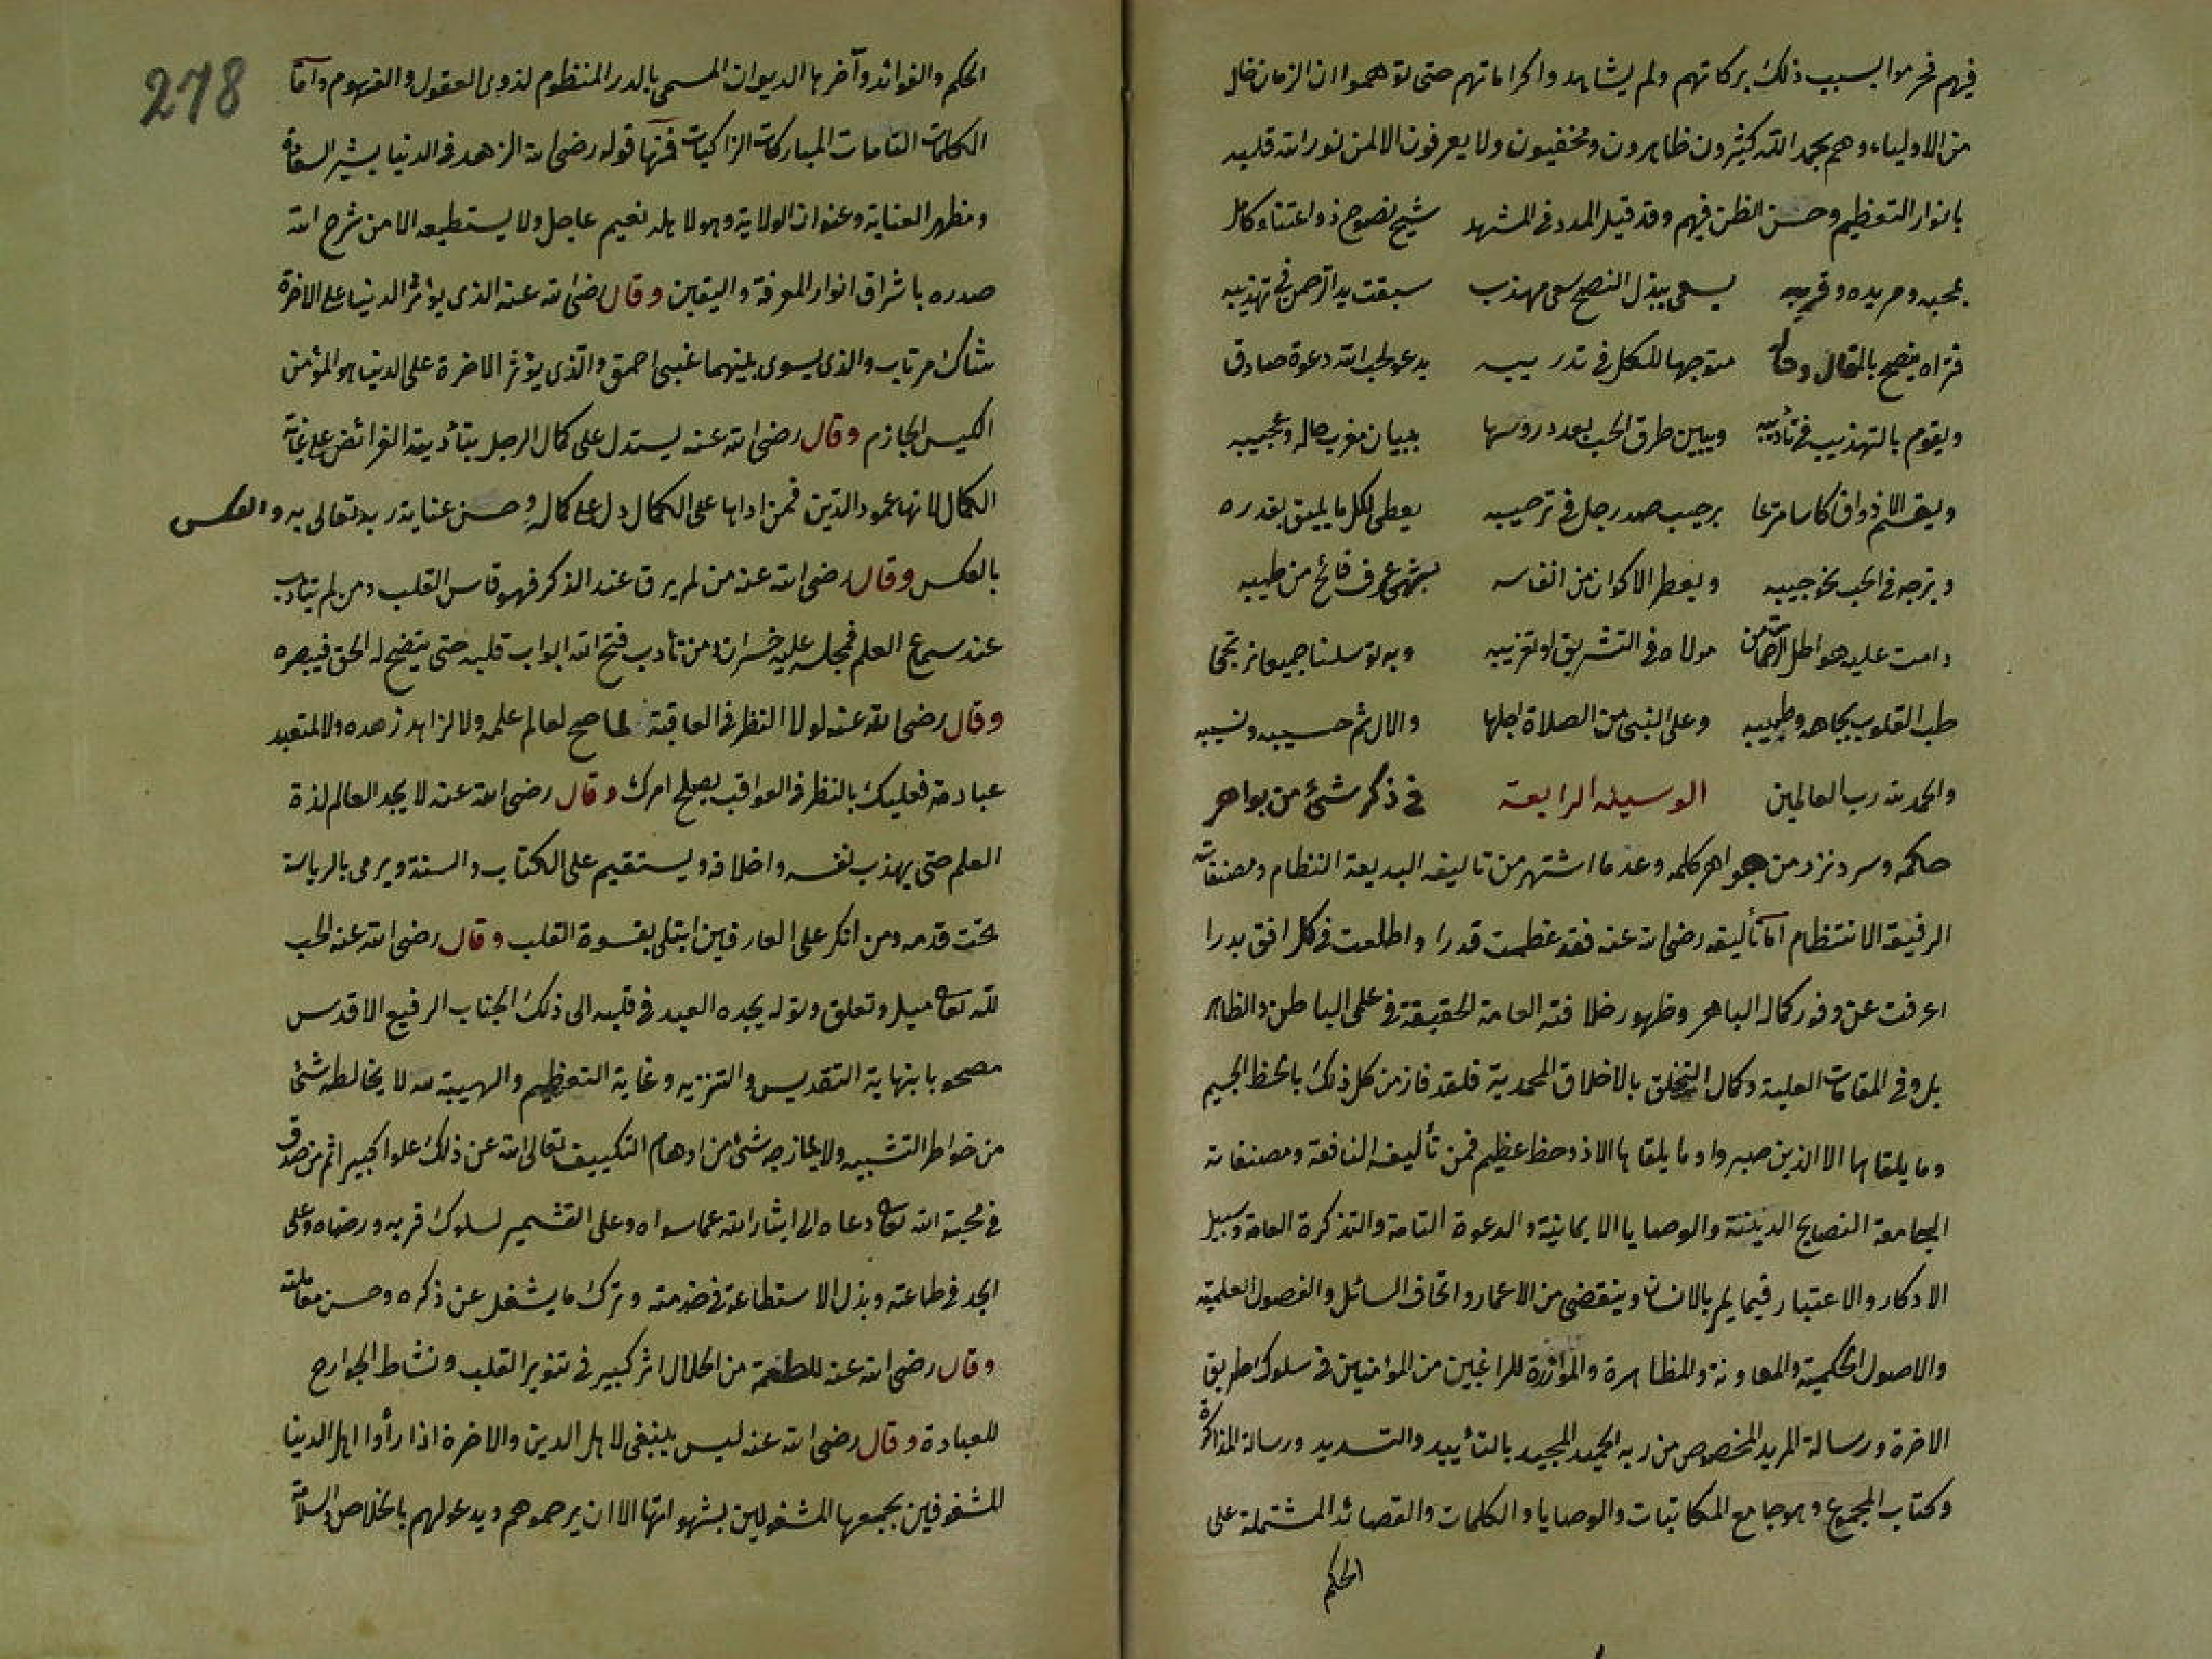 فيهم فحرموا بسبب ذلك بركاتهم ولم يشاهدوا كراماتهم حتى توهموا ان الزمان خال
من الاولياء وهم بحمد الله كثيرون ظاهرون ومخفيون ولا يعرفون الا لمن نور الله قلبه
بانوار التعظيم وحسن الظن فيهم وقد قيل المدد في المشهد شيخ نصوح ذو اعتناء كامل
بمحبه ومريده وقريبه يسعى ببذل النصح سعى مهذب سبقت يد الرحمن في تهذيبه
فتراه ينصح بالمقال وحاله متوجها للكل في تدريبه يدعو لحب الله دعوة صادق
ويقوم بالتهذيب في تأديبه ويبين طرق الحب بعد دروسها ببيان مغرب حاله وعجيبه
ويقسم الاذواق كاسا مترعا برحيب صدر جل في ترحيبه يعطى لكل ما يليق بقدره
ويزجه في الحب نحو حبيبه ويعطر الاكوان من انفاسه بشهى عرف فائح من طيبه
دامت عليه هواطل الرحمات من مولاه في التشريق او تغريبه وبه توسلنا جميعا نرتجى
طب القلوب بجاهه وطبيبه وعلى النبى من الصلاة اجلها والال ثم حسيبه ونسيبه
والحمد لله رب العالمين الوسيلة الرابعة في ذكر شئ من بواهر
حكمه وسرد نزر من جواهر كلمه وعد ما اشتهر من تاليفه البديعة النظام ومصنفاته
الرفيعة الانتظام اما تأليفه رضى الله عنه فقد عظمت قدرا واطلعت في كل افق بدرا
اعرفت عن وفور كماله الباهر وظهور خلافته العامة الحقيقة في علمى الباطن والظاهر
بل وفي المقامات العلية وكمال التخلق بالاخلاق المحمدية فلقد فاز من كل ذلك بالحظ الجسيم
وما يلقاها الا الذين صبروا وما يلقاها الا ذو حظ عظيم فمن تأليفه النافعة ومصنفاته
الجامعة النصايح الدينية والوصايا الايمانية والدعوة التامة والتذكرة العامة وسبيل
الادكار والاعتبار فيما يمر بالانسان وينقضى من الاعمار واتحاف السائل والفصول العلمية
والاصول الحكمية والمعاونة والمظاهرة والموازرة للراغبين من المؤمنين في سلوك طريق
الاخرة ورسالة المريد المخصوص من ربه الحميد المجيد بالتأييد والتسديد ورسالة المذاكرة
وكتاب المجموع وهو جامع المكاتبات والوصايا والكلمات والقصائد المشتملة على
الحكم
278
الحكم والفوائد وآخرها الديوان المسمى بالدر المنظوم لذوى العقول والفهوم واما
الكلمات التامات المباركات الزاكيات فمنها قوله رضى الله الزهد في الدنيا بشير السعادة
ومظهر العناية وعنوان الولاية وهو لاهله نعيم عاجل ولا يستطيعه الا من شرح الله
صدره باشراق انوار المعرفة واليقين وقال رضى الله عنه الذى يؤثر الدنيا على الاخرة
شاك مرتاب والذى يسوى بينهما غبى احمق والذى يؤثر الاخرة على الدنيا هو المؤمن
الكيس الحازم وقال رضى الله عنه يستدل على كمال الرجل بتأدية الفرائض على غاية
الكمال لانها عمود الدين فمن اداها على الكمال دل على كماله وحسن عناية ربه تعالى به والعكس
بالعكس وقال رضى الله عنه من لم يرق عند الذكر فهو قاسى القلب ومن لم يتأدب
عند سماع العلم فمجلسه عليه خسران ومن تأدب فتح الله ابواب قلبه حتى يتضح له الحق فيبصره
وقال رضى الله عنه لولا النظر في العاقبة لما صح لعالم علمه ولا لزاهد زهده ولا لمتعبد
عبادته فعليك بالنظر في العواقب يصلح امرك وقال رضى الله عنه لا يجد العالم لذة
العلم حتى يهذب نفسه واخلاقه ويستقيم على الكتاب والسنة ويرمى بالرياسة
تحت قدمه ومن انكر على العارفين ابتلى بقسوة القلب وقال رضى الله عنه الحب
لله تعالى ميل وتعلق وتوله يجده العبد في قلبه الى ذلك الجناب الرفيع الاقدس
مصحوبا بنهاية التقديس والتنزيه وغاية التعظيم والهيبة له لا يخالطه شئ
من خواطر التشبيه ولا يمازجه شئ من اوهام التكييف تعالى الله عن ذلك علوا كبيرا ثم من صدق
في محبة الله تعالى دعاه الى ايثار الله عما سواه وعلى التشمير لسلوك قربه ورضاه وعلى
الجد في طاعته وبذل الاستطاعة في خدمته وترك ما يشغل عن ذكره وحسن معاملته
وقال رضى الله عنه للطعمة من الحلال اثر كبير في تنوير القلب ونشاط الجوارح
للعبادة وقال رضى الله عنه ليس ينبغى لاهل الدين والاخرة اذا رأوا اهل الدنيا
المشغوفين بجمعها المشغولين بشهواتها الا ان يرحموهم ويدعو لهم بالخلاص والسلامة